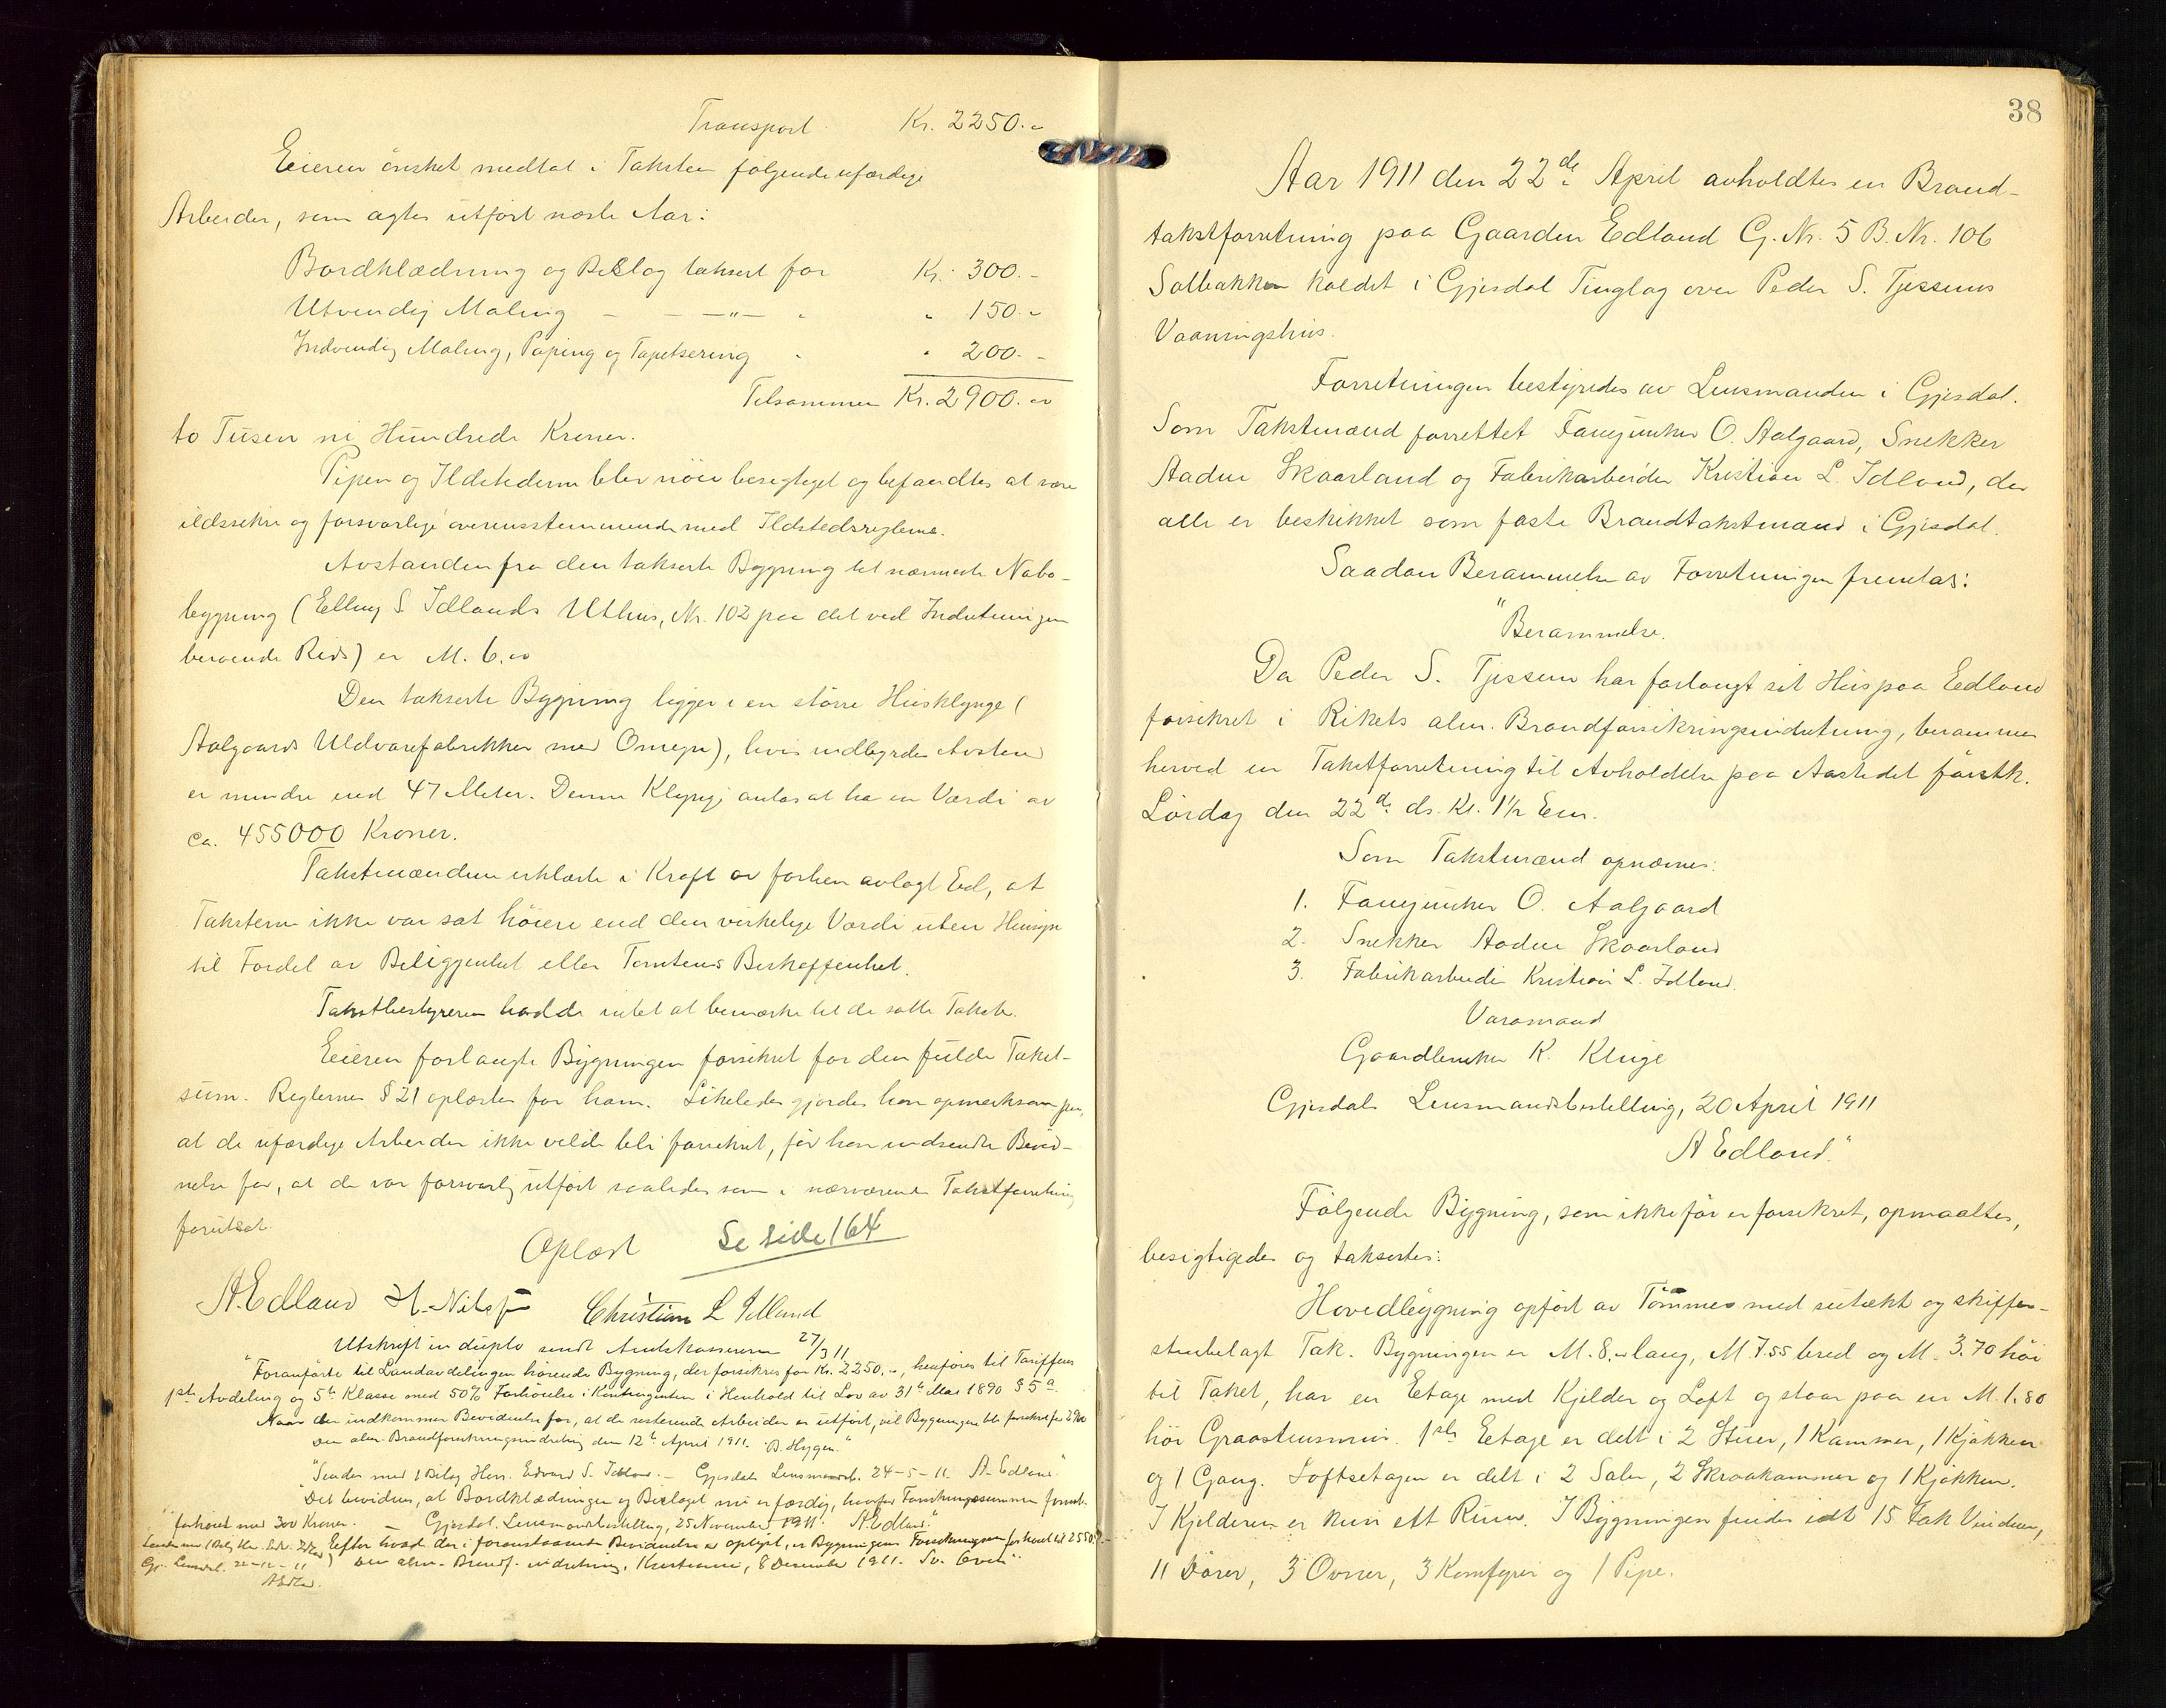 Transport Kr. 2250.-
Eieren ønsket medtat i Taksten følgende uferdige
Arbeider, som agtes utført næste Aar:
Bordklædning og Beslag taksert for Kr. 300.-
Utvendig Maling - - -"- - " 150.-
Indvendig Maling, Paping og Tapetsering " " 200.-
Tilsammen Kr. 2900.00
to Tusen ni Hundrede Kroner.
Pipen og Ildstederne blev nøie besigtiget og befandtes at være
ildssikre og forsvarlige overensstemmende med Ildstedsreglerne.
Avstanden fra den takserte Bygning til nærmeste Nabo-
bygning (Elling S Idlands Uthus, Nr. 102 paa det ved Indretningen
beroende Rids) er M. 6.00
Den takserte Bygning ligger i en større Husklynge (
Aalgaards Uldvarefabrikker med Omegn), hvis indbyrdes Avstand
er mindre end 47 Meter. Denne Klynge antas at ha en Værdi av
ca. 455000 Kroner.
Takstmændene erklærte i Kraft av forhen avlagt Ed, at
Taksterne ikke var sat høiere end den virkelige Værdi uten Hensyn
til Fordel av Beliggenhet eller Tomtens Beskaffenhet.
Takstbestyreren hadde intet at bemærke til de satte Takster.
Eieren forlangte Bygningen forsikret for den fulde Takst-
sum. Reglernes § 21 oplæstes for ham. Likeledes gjordes han opmerksom paa,
at de uferdige Arbeider ikke vilde bli forsikret, før han indsendte Bevid-
nelse for, at de var forsvarlig utført saaledes som i nærværende Takstforretning
forutsat.
Oplæst Se side 164
A. Edland H. Nilsen Christian L Idland
Utskrift in duplo sendt Amtskassereren 27/3 11
"Foranførte til Landavdelingen hørende Bygning, der forsikres for Kr. 2250.-, henføres til Tariffens
1ste Avdeling og 5te Klasse med 50% Forhøielse i Kontingenten i Henhold til Lov av 31te Mai 1890 § 5 a.
Naar der indkommer Bevidnelse for, at de resterende Arbeider er utført, vil Bygningen bli forsikret for 2900
Den alm. Brandforsikringsindretning den 12te April 1911. B. Hygen."
"Sendes med 1 Bilag Herr. Edvard S. Idland. - Gjesdals Lensmandsb. 24-5-11. A. Edland"
"Det bevidnes, at Bordklædningen og Beslaget nu er færdig, hvorfor Forsikringssummen
forhøiet med 300 Kroner. - Gjesdal Lensmandsbestilling, 25 November 1911. A. Edland."
"Efter hvad der i foranstaaende Bevidnelse er oplyst, er Bygningens Forsikringssum forhøiet til 2550.-
Den alm. Brandf. indretning, Kristiania, 8 December 1911.
Gj. Lensmd. 22-12-11
AEdland.
38
Aar 1911 den 22de April avholdtes en Brand-
takstforretning paa Gaarden Edland G. Nr. 5 B. Nr. 106
Solbakken kaldet i Gjesdal Tinglag over Peder S. Tjessems
Vaaningshus.
Forretningen bestyredes av Lensmanden i Gjesdal.
Som Takstmænd forrettet Fanejunker O. Aalgaard, Snekker
Aadne Skaarland og Fabrikarbeider Kristian L. Idland, der
alle er beskikket som faste Brandtakstmænd i Gjesdal.
Saadan Berammelse av Forretningen fremlas:
"Berammelse.
Da Peder S. Tjessem har forlangt sit Hus paa Edland
forsikret i Rikets alm. Brandforsikringsindretning, berammes
herved en Takstforretning til Avholdelse paa Aastedet førstk.
Lørdag den 22de ds. Kl. 1 1/2 Em.
Som Takstmænd opnævnes:
1. Fanejunker O. Aalgaard
2. Snekker Aadne Skaarland
3. Fabrikarbeider Kristian L. Idland.
Varamand
Gaardbruker K. Kluge
Gjesdals Lensmandsbestilling, 20 April 1911
A Edland."
Følgende Bygning, som ikke før er forsikret, opmaaltes,
besigtigedes og taksertes:
Hovedbygning opført av Tømmer med sutækt og skiffer-
stenbelagt Tak. Bygningen er M. 8.00 lang, M 7.55 bred og M. 3.70 høi
til Taket, har en Etage med Kjelder og Loft og staar paa en M. 1.80
høi Graastensmur. 1ste Etage er delt i 2 Stuer, 1 Kammer, 1 Kjøkken
og 1 Gang. Loftsetagen er delt i 2 Saler, 2 Skraakammer og 1 Kjøkken.
I Kjelderen er kun ett Rum. I Bygningen findes idt 15 Fak Vinduer,
11 Dører, 3 Ovner, 3 Komfyrer og 1 Pipe.